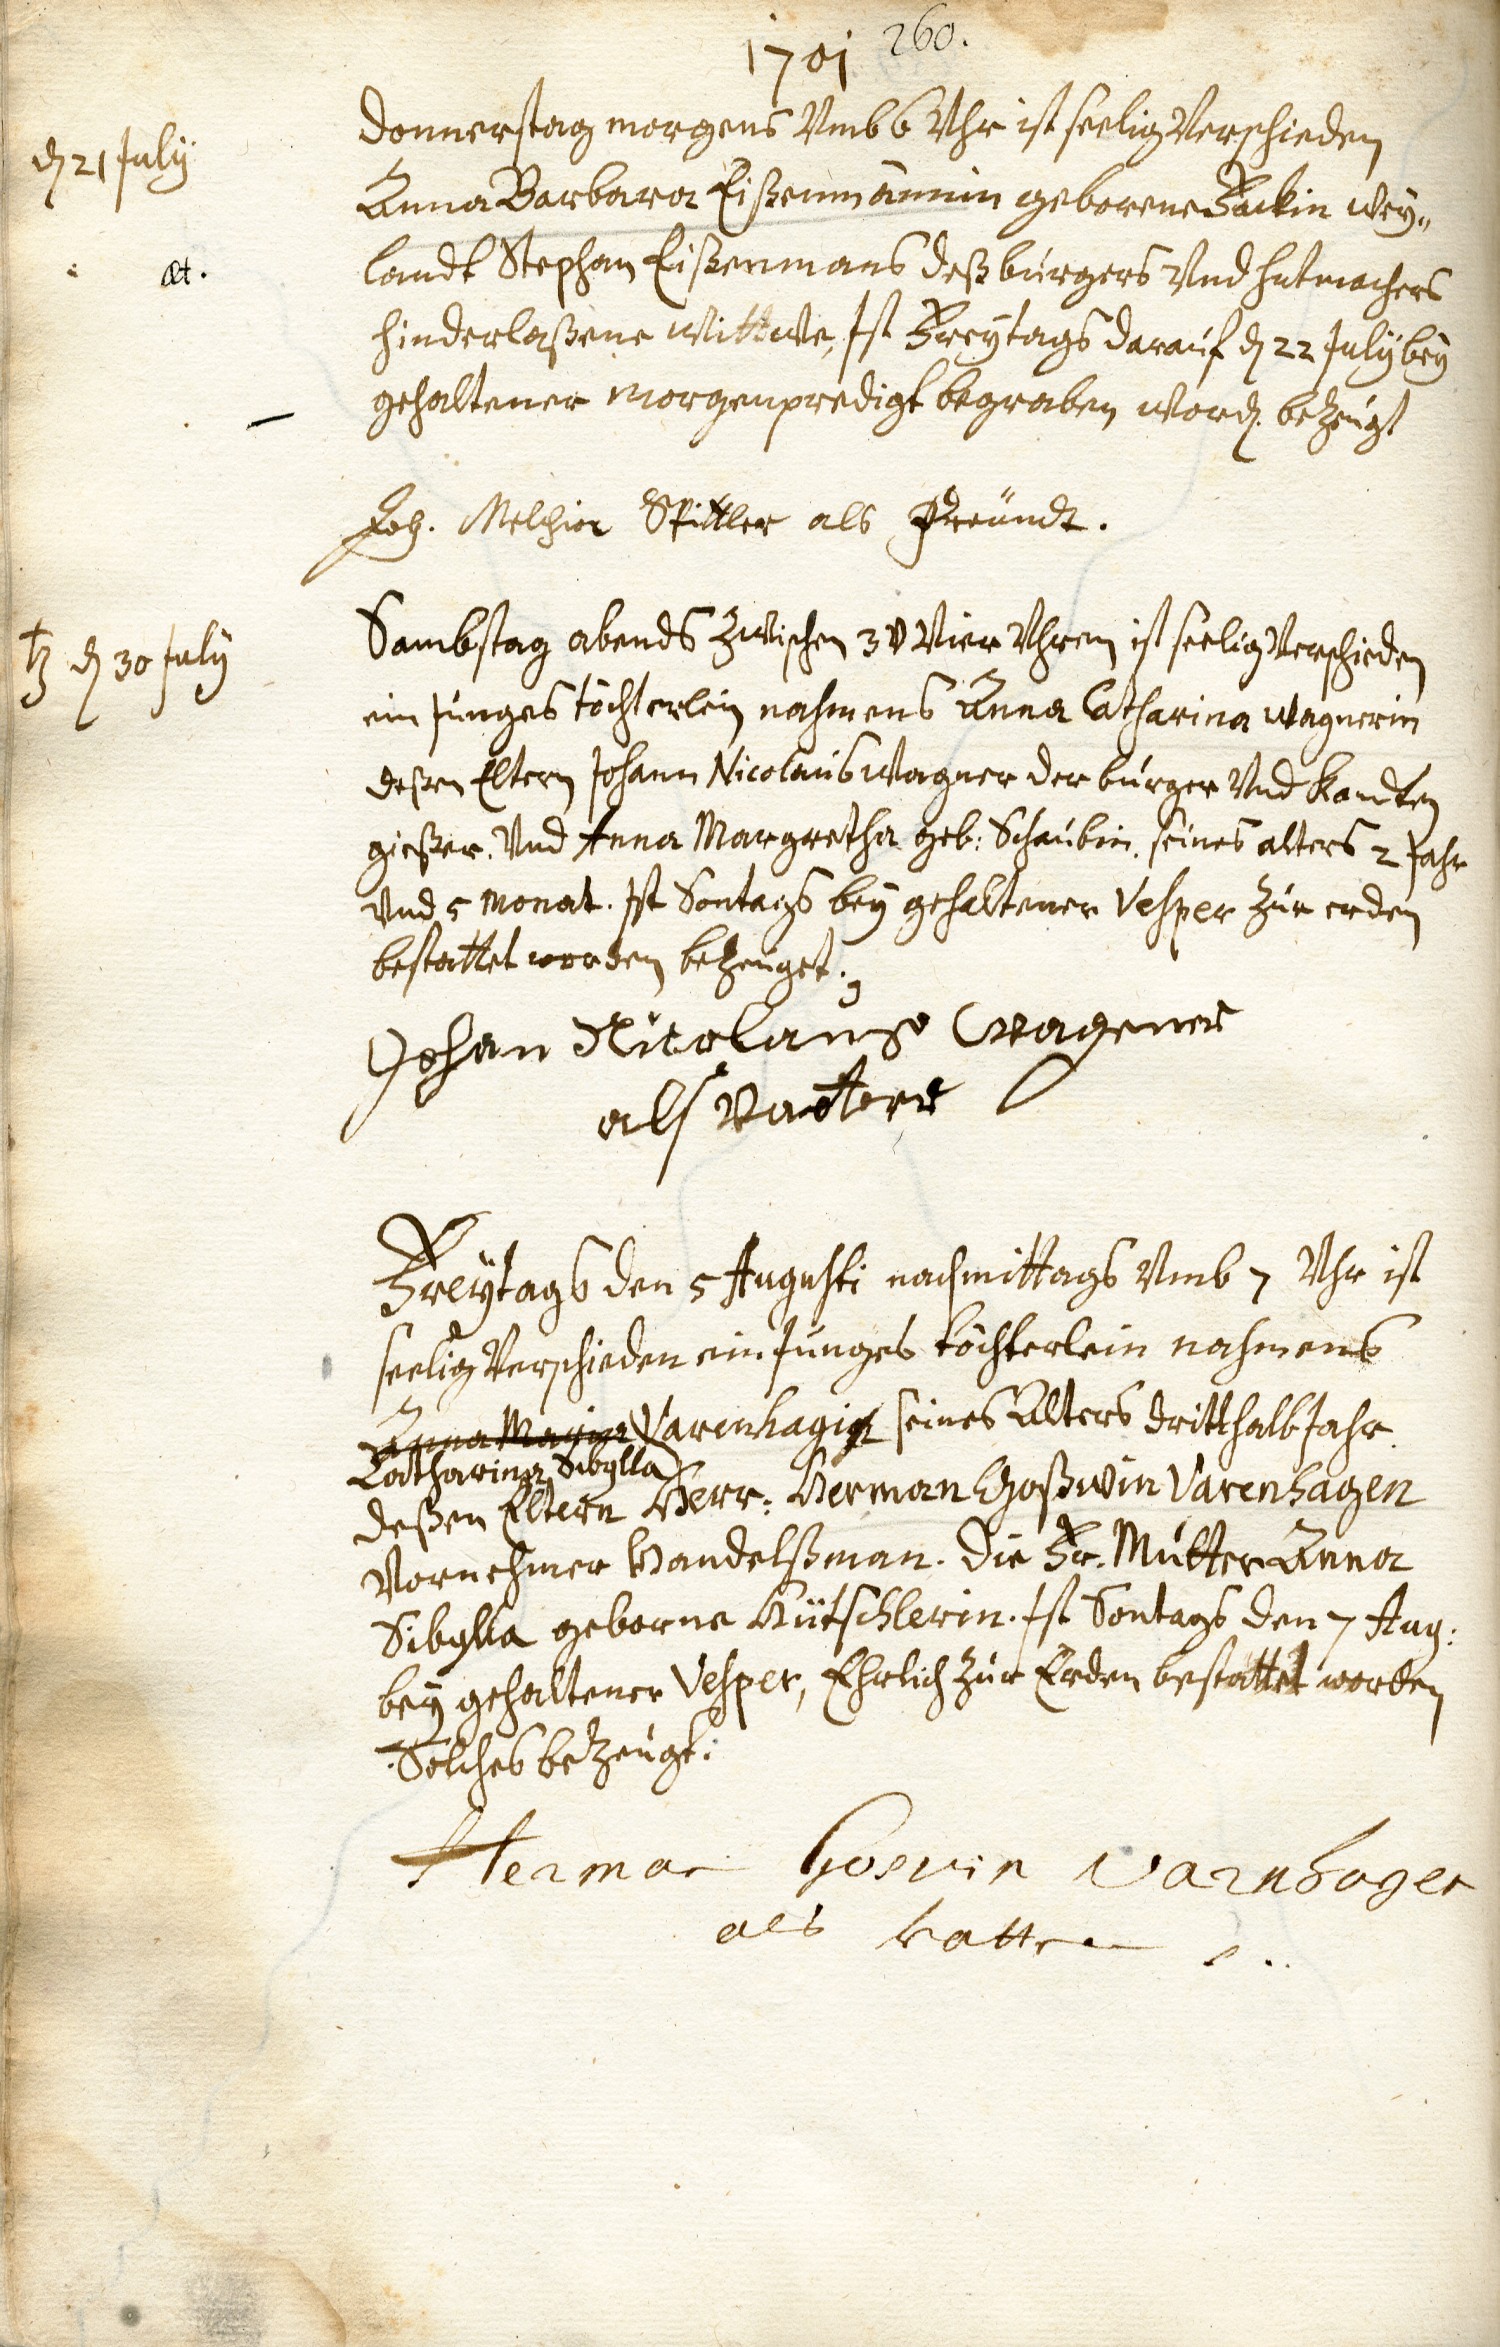 1701 260.
d 21 July
Donnerstag morgens Vmb 6 Vhr ist seelig Verschieden
Anna Barbara Eißenmännin geborene Backin wey„
æt.
landt Stephan Eißenmans deß bürgers Vnd hutmachers
hinderlaßene Wittwe, Ist Freytags darauf d 22 July bey
gehaltener morgenpredigt begraben word. bezeugt
Joh. Melchior Spittler als Freündt.
♄ d 30 July
Sambstag abends Zwischen 3 V Vier Vhren ist seelig Verschieden
ein Junges töchterlein nahmens Anna Catharina Wagnerin
deßen Eltern Johann Nicolaus Wagner der bürger Vnd Kandten
gießer. Vnd Anna Margretha geb: Schaubin. seines alters 2 Jahr
Vnd 5 monat. Ist Sontags bey gehaltener Vesper zur erden
bestattet worden bezeuget.
Johan Nicolauß Wagener
als Vatterr
Freÿtags den 5 Augusti nachmittags Vmb 7 Vhr ist
seelig Verschieden ein Junges töchterlein nahmens
Anna Maria Varenhagin seines Alters dritthalb Jahr
Catharina Sibylla
deßen Eltern Herr: Herman Goßwin Varenhagen
Vornehmer Handelßman. Die Fr. Mutter Anna
Sibylla geborne Kütschlerin. Ist Sontags den 7 Aug:
bey gehaltener Vesper, Ehrlich zur Erden bestattet worden
Solches bezeugt:
Herman Goswin Varnhagen
als vatter